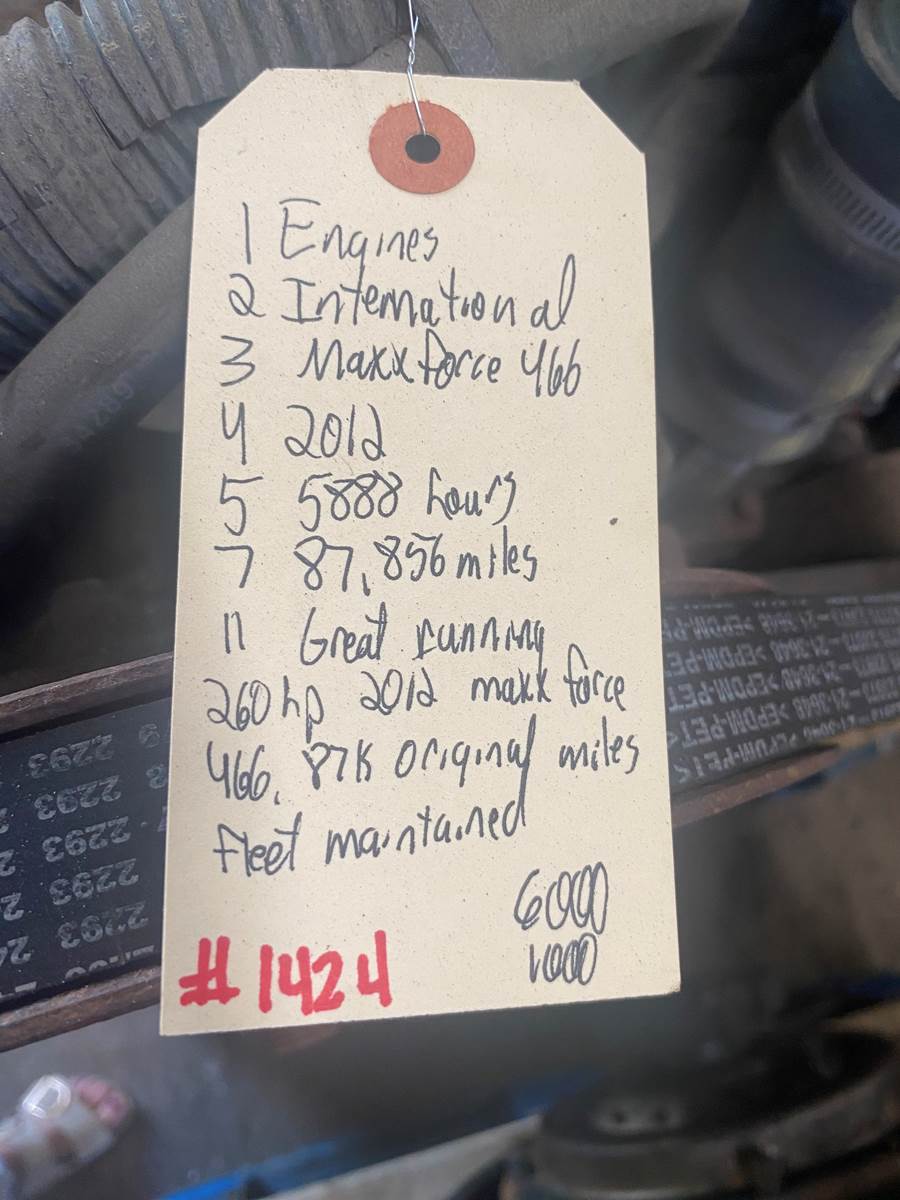 1 Engines
2 International
3 Maxxforce 466
4 2012
5 5888 hours
7 87,856 miles
11 Great running
260hp 2012 maxxforce
466, 87K original miles
fleet maintained
6000
1000
#1424
2293
2293
2293
2293